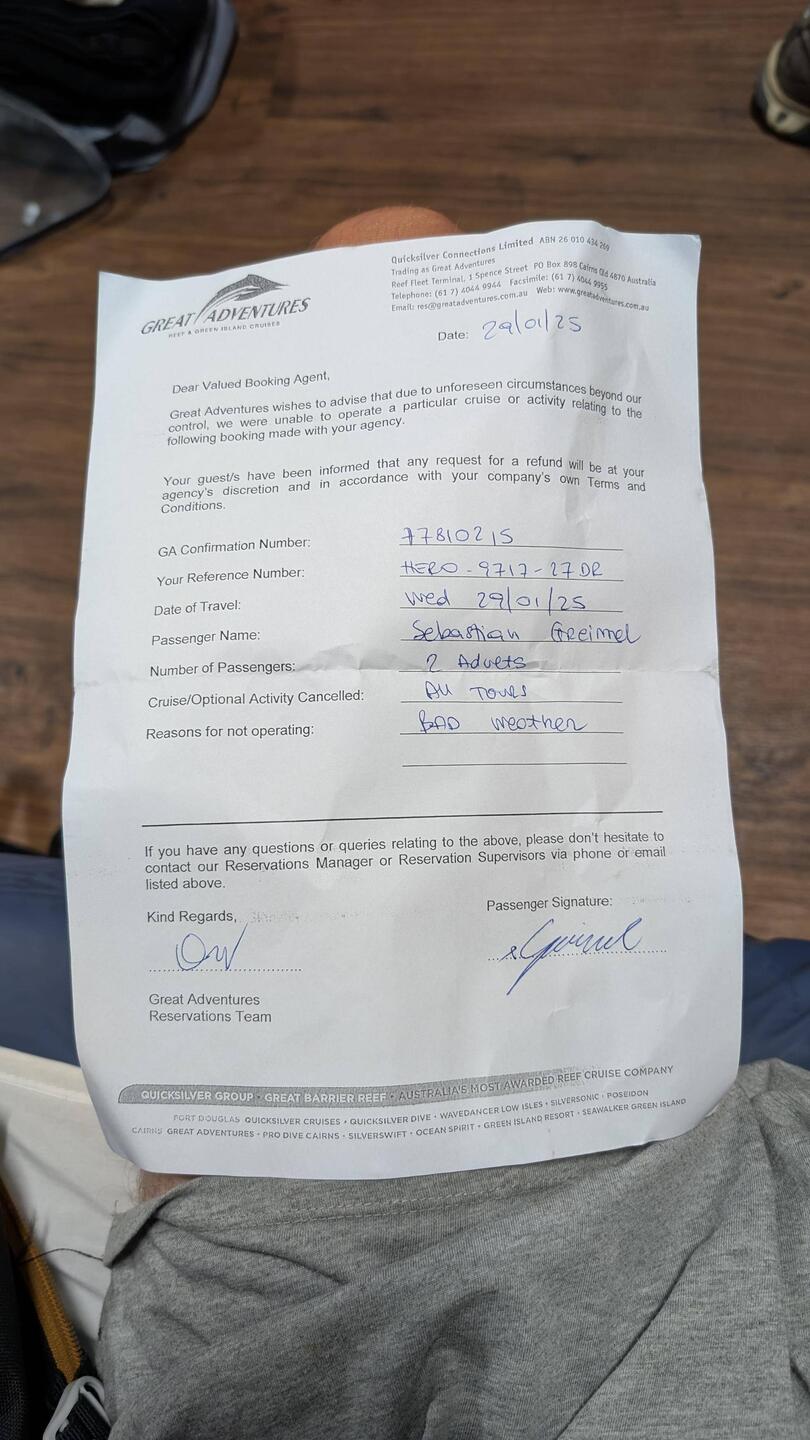 GREAT ADVENTURES
REEF & GREEN ISLAND CRUISES
Quicksilver Connections Limited ABN 26 010 434 269
Trading as Great Adventures
Reef Fleet Terminal, 1 Spence Street PO Box 898 Cairns Qld 4870 Australia
Telephone: (61 7) 4044 9944 Facsimile: (61 7) 4044 9955
Email: res@greatadventures.com.au Web: www.greatadventures.com.au
Date: 29/01/25
Dear Valued Booking Agent,
Great Adventures wishes to advise that due to unforeseen circumstances beyond our
control, we were unable to operate a particular cruise or activity relating to the
following booking made with your agency.
Your guest/s have been informed that any request for a refund will be at your
agency's discretion and in accordance with your company's own Terms and
Conditions.
GA Confirmation Number: 77810215
Your Reference Number: HERO-9717-27DR
Date of Travel: Wed 29/01/25
Passenger Name: Sebastian Greimel
Number of Passengers: 2 Adults
Cruise/Optional Activity Cancelled: All Tours
Reasons for not operating: BAD weather
If you have any questions or queries relating to the above, please don't hesitate to
contact our Reservations Manager or Reservation Supervisors via phone or email
listed above.
Kind Regards,
Passenger Signature:
Great Adventures
Reservations Team
QUICKSILVER GROUP • GREAT BARRIER REEF • AUSTRALIA'S MOST AWARDED REEF CRUISE COMPANY
PORT DOUGLAS QUICKSILVER CRUISES • QUICKSILVER DIVE • WAVEDANCER LOW ISLES • SILVERSONIC • POSEIDON
CAIRNS GREAT ADVENTURES • PRO DIVE CAIRNS • SILVERSWIFT • OCEAN SPIRIT • GREEN ISLAND RESORT • SEAWALKER GREEN ISLAND